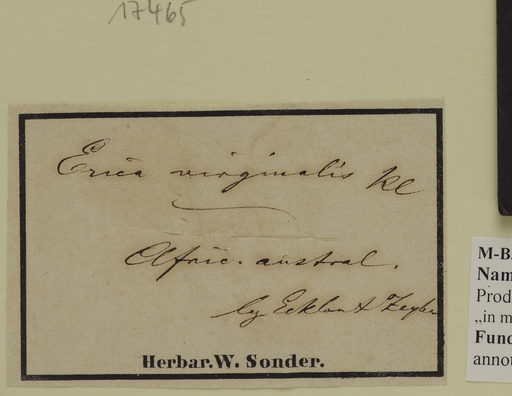 17465
Erica virginalis Kl
Afric. austral.
leg Ecklon & Zeyher
Herbar. W. Sonder.
M-B
Nam
Prod
„in m
Fund
annot